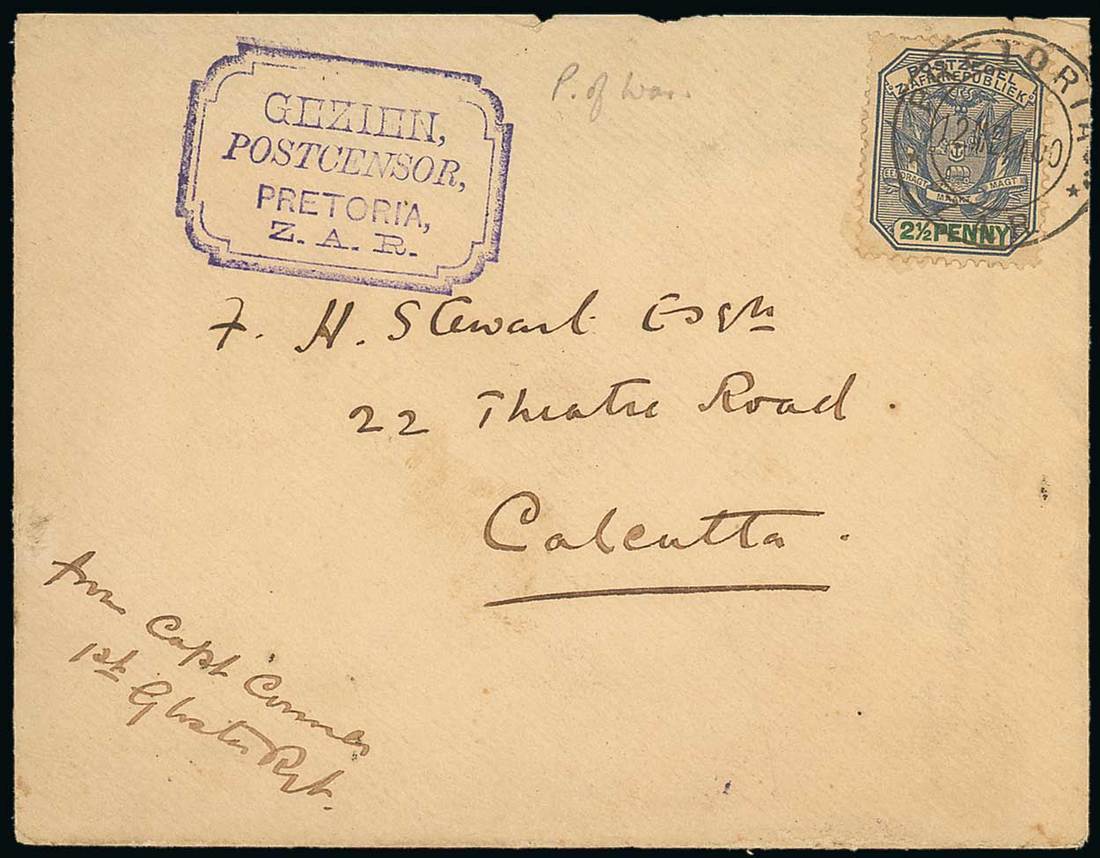 GEZIEN,
POSTCENSOR,
PRETORIA,
Z. A. R.
P. of War.
POSTZEGEL
Z. AFR. REPUBLIEK
EENDRAGT MAAKT MAGT
2½ PENNY
PRETORIA
Z.A.R.
F. H. Stewart Esqre
22 Theatre Road.
Calcutta.
from Capt Connor
1st Gloster Regt.